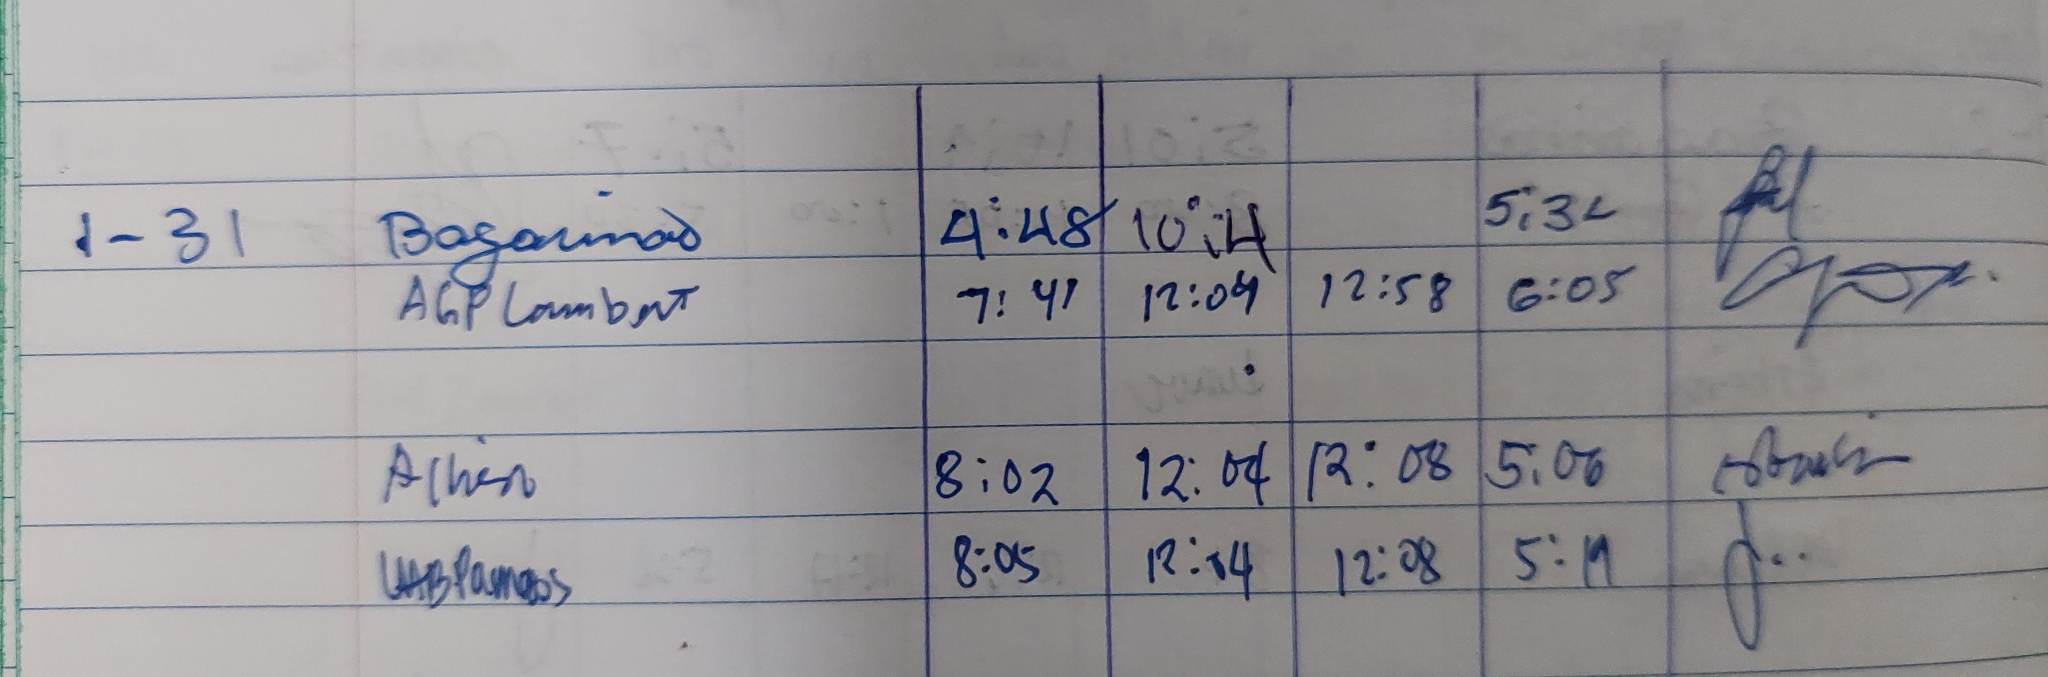 1-31 Bagarinao 4:48 10:4 5:32
AGP Lambert 7:41 12:04 12:58 6:05
8:02 12:04 12:08 5:06
8:05 12:04 12:08 5:11